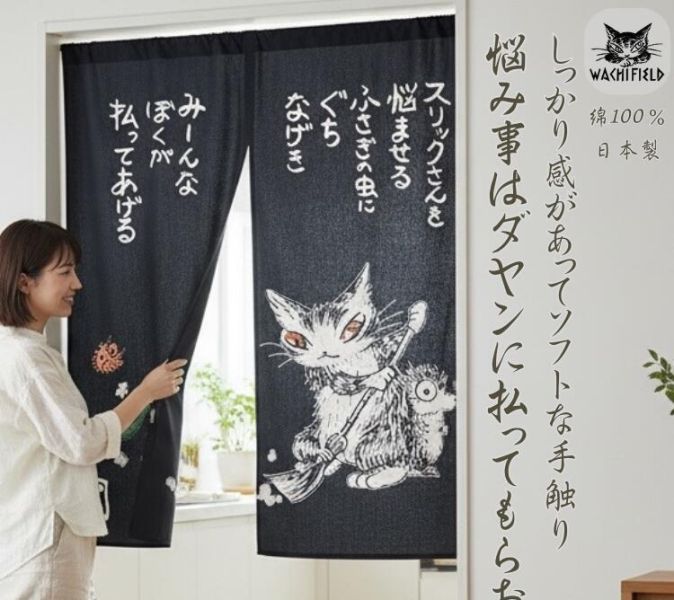 WACHIFIELD
綿100％
日本製
しっかり感があってソフトな手触り
悩み事はダヤンに払ってもらお
スリックさんを
悩ませる
ふさぎの虫に
ぐち
なげき
みーんな
ぼくが
払ってあげる